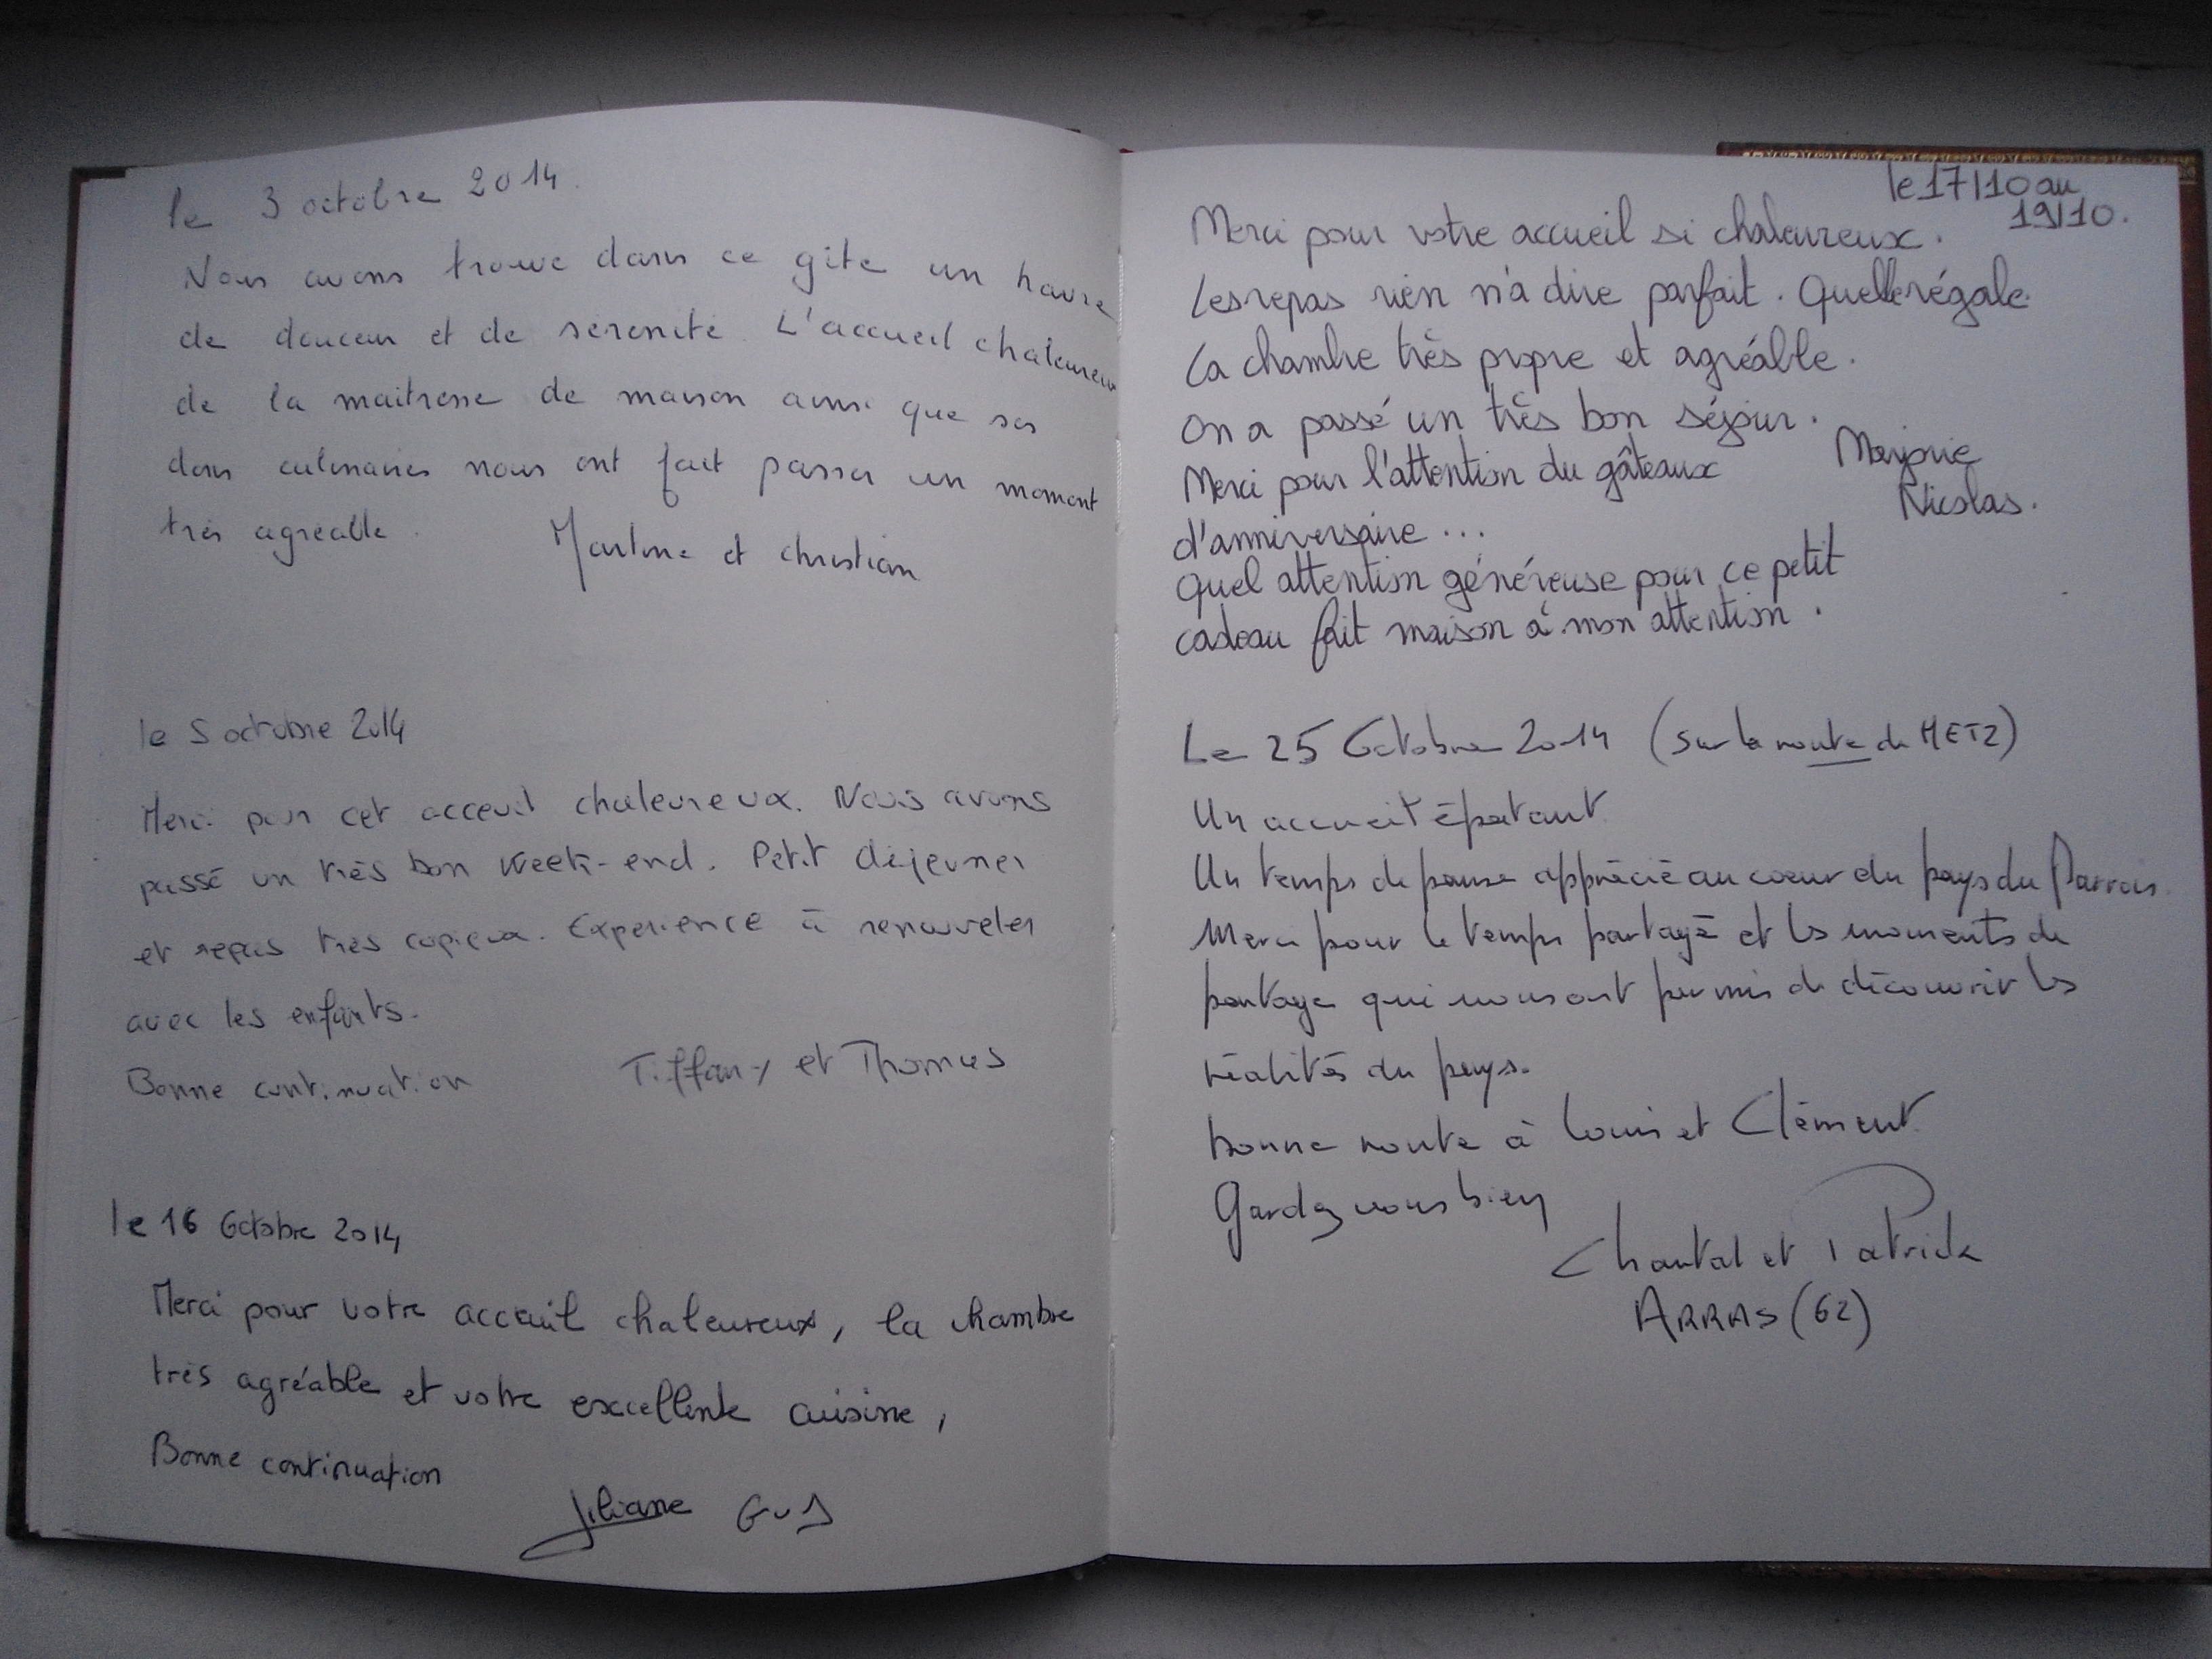 le 3 octobre 2014.
Nous avons trouvé dans ce gite un havre
de douceur et de sérénité. L'accueil chaleureux
de la maitresse de maison ainsi que ses
dons culinaires nous ont fait passer un moment
très agréable.
Martine et christian
le 5 octobre 2014
Merci pour cet acceuil chaleureux. Nous avons
passé un très bon week-end. Petit déjeuner
et repas très copieux. Expérience à renouveler
avec les enfants.
Bonne continuation
Tiffany et Thomas
le 16 Octobre 2014
Merci pour votre acceuil chaleureux, la chambre
très agréable et votre excellente cuisine,
Bonne continuation
Liliane Gus
le 17/10 au
19/10.
Merci pour votre accueil si chaleureux.
Les repas rien n'a dire parfait. Quelle régale.
La chambre très propre et agréable.
On a passé un très bon séjour.
Merci pour l'attention du gâteaux
d'anniversaire...
Marjorie
Nicolas.
Quel attention généreuse pour ce petit
cadeau fait maison à mon attention.
Le 25 Octobre 2014 (sur la route de METZ)
Un accueil épatant
Un temps de pause apprécié au coeur du pays du
Merci pour le temps partagé et les moments de
partage qui nous ont permis de découvrir les
réalités du pays.
bonne route à Louis et Clément.
Gardez vous bien
Chantal et Patrick
ARRAS (62)